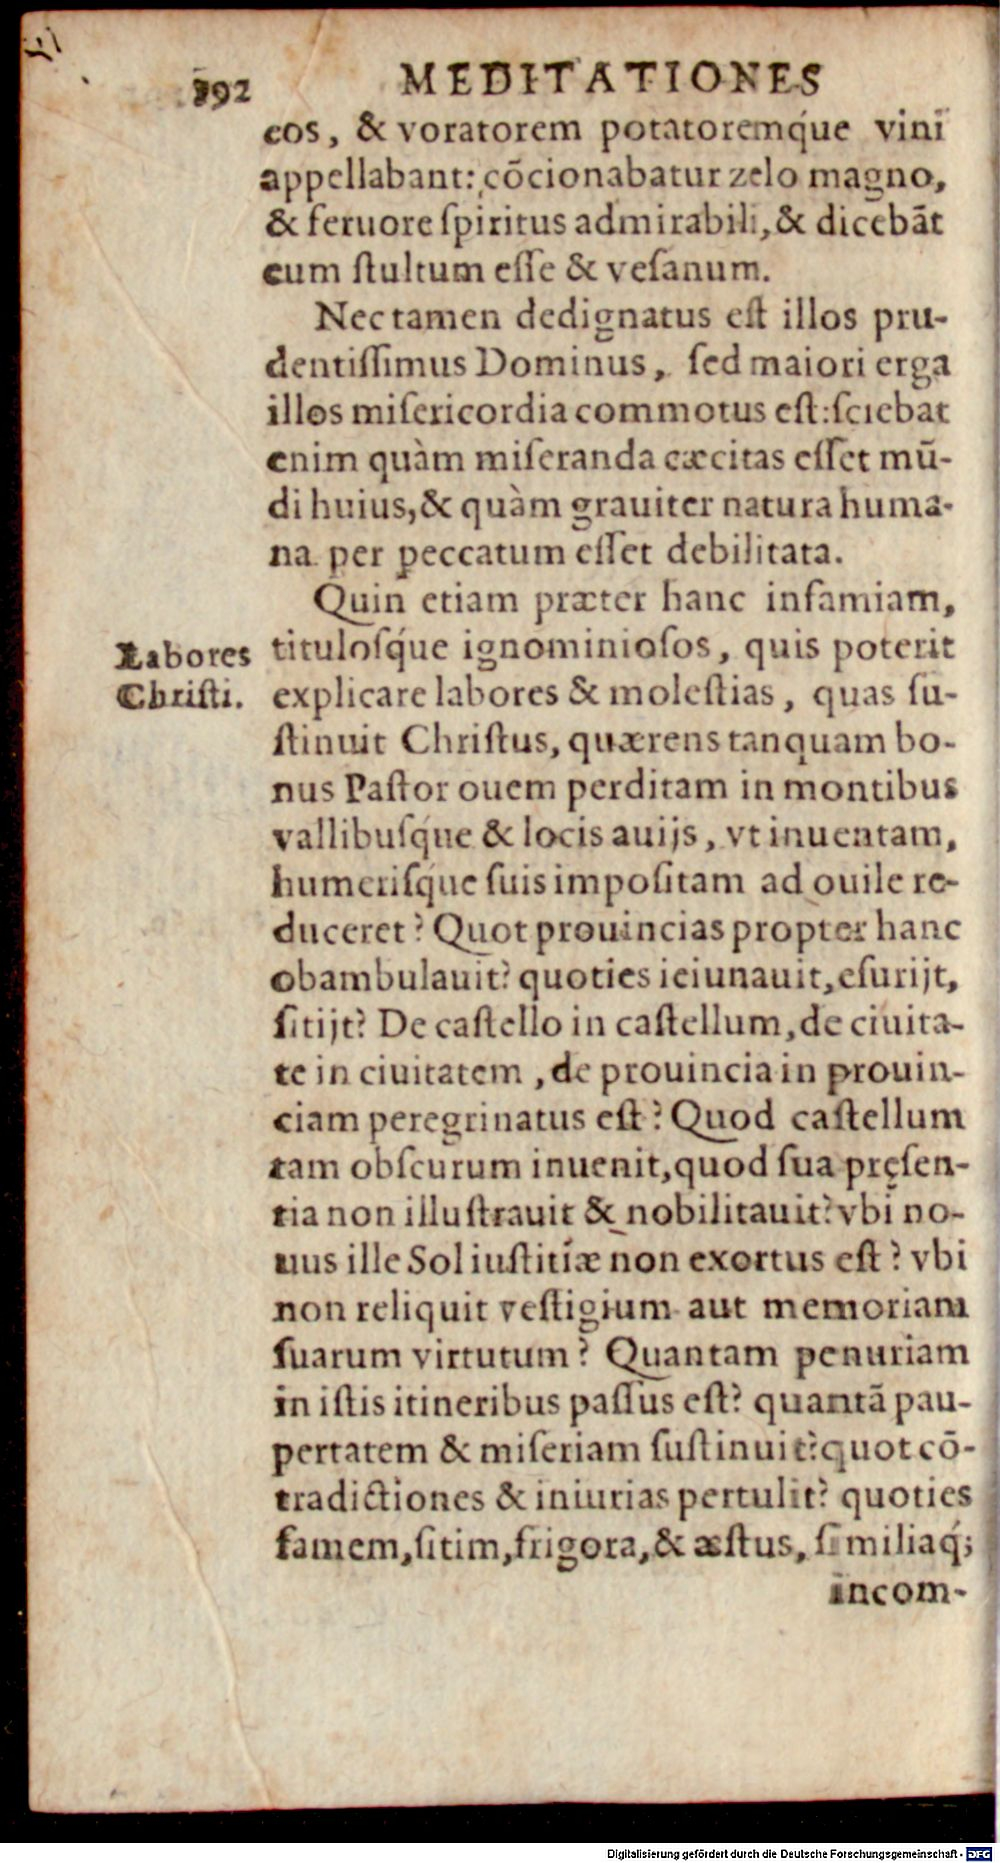 392 MEDITATIONES
eos, & voratorem potatoremq́ue vini
appellabant: cōcionabatur zelo magno,
& feruore ſpiritus admirabili, & dicebāt
eum ſtultum eſſe & veſanum.
Nec tamen dedignatus eſt illos pru-
dentiſſimus Dominus, ſed maiori erga
illos miſericordia commotus eſt: ſciebat
enim quàm miſeranda cæcitas eſſet mū-
di huius, & quàm grauiter natura huma-
na per peccatum eſſet debilitata.
Quin etiam præter hanc infamiam,
Labores
Chriſti.
tituloſq́ue ignominioſos, quis poterit
explicare labores & moleſtias, quas ſu-
ſtinuit Chriſtus, quærens tanquam bo-
nus Paſtor ouem perditam in montibus
vallibuſq́ue & locis auijs, vt inuentam,
humeriſq́ue ſuis impoſitam ad ouile re-
duceret? Quot prouincias propter hanc
obambulauit? quoties ieiunauit, eſurijt,
ſitijt? De caſtello in caſtellum, de ciuita-
te in ciuitatem, de prouincia in prouin-
ciam peregrinatus eſt? Quod caſtellum
tam obſcurum inuenit, quod ſua pręſen-
tia non illuſtrauit & nobilitauit? vbi no-
uus ille Sol iuſtitiæ non exortus eſt? vbi
non reliquit veſtigium aut memoriam
ſuarum virtutum? Quantam penuriam
in iſtis itineribus paſſus eſt? quantā pau-
pertatem & miſeriam ſuſtinuit? quot cō-
tradictiones & iniurias pertulit? quoties
famem, ſitim, frigora, & æſtus, ſimiliaq́;
incom-
Digitalisierung gefördert durch die Deutsche Forschungsgemeinschaft - DFG